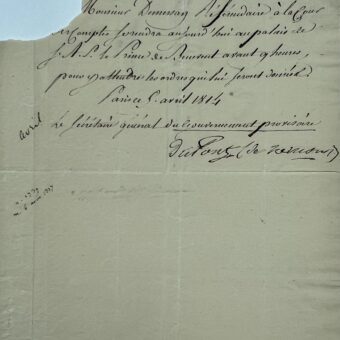 Monsieur Demersay Référendaire à la Cour
des Comptes se rendra aujourd'hui au palais de
S. A. S. le Prince de Benevent avant 9 heures,
pour y attendre les ordres qui lui seront donnés.
Paris ce 5. avril 1814
Le Sécrétaire général du Gouvernement provisoire
DuPont (de Nemours)
avril